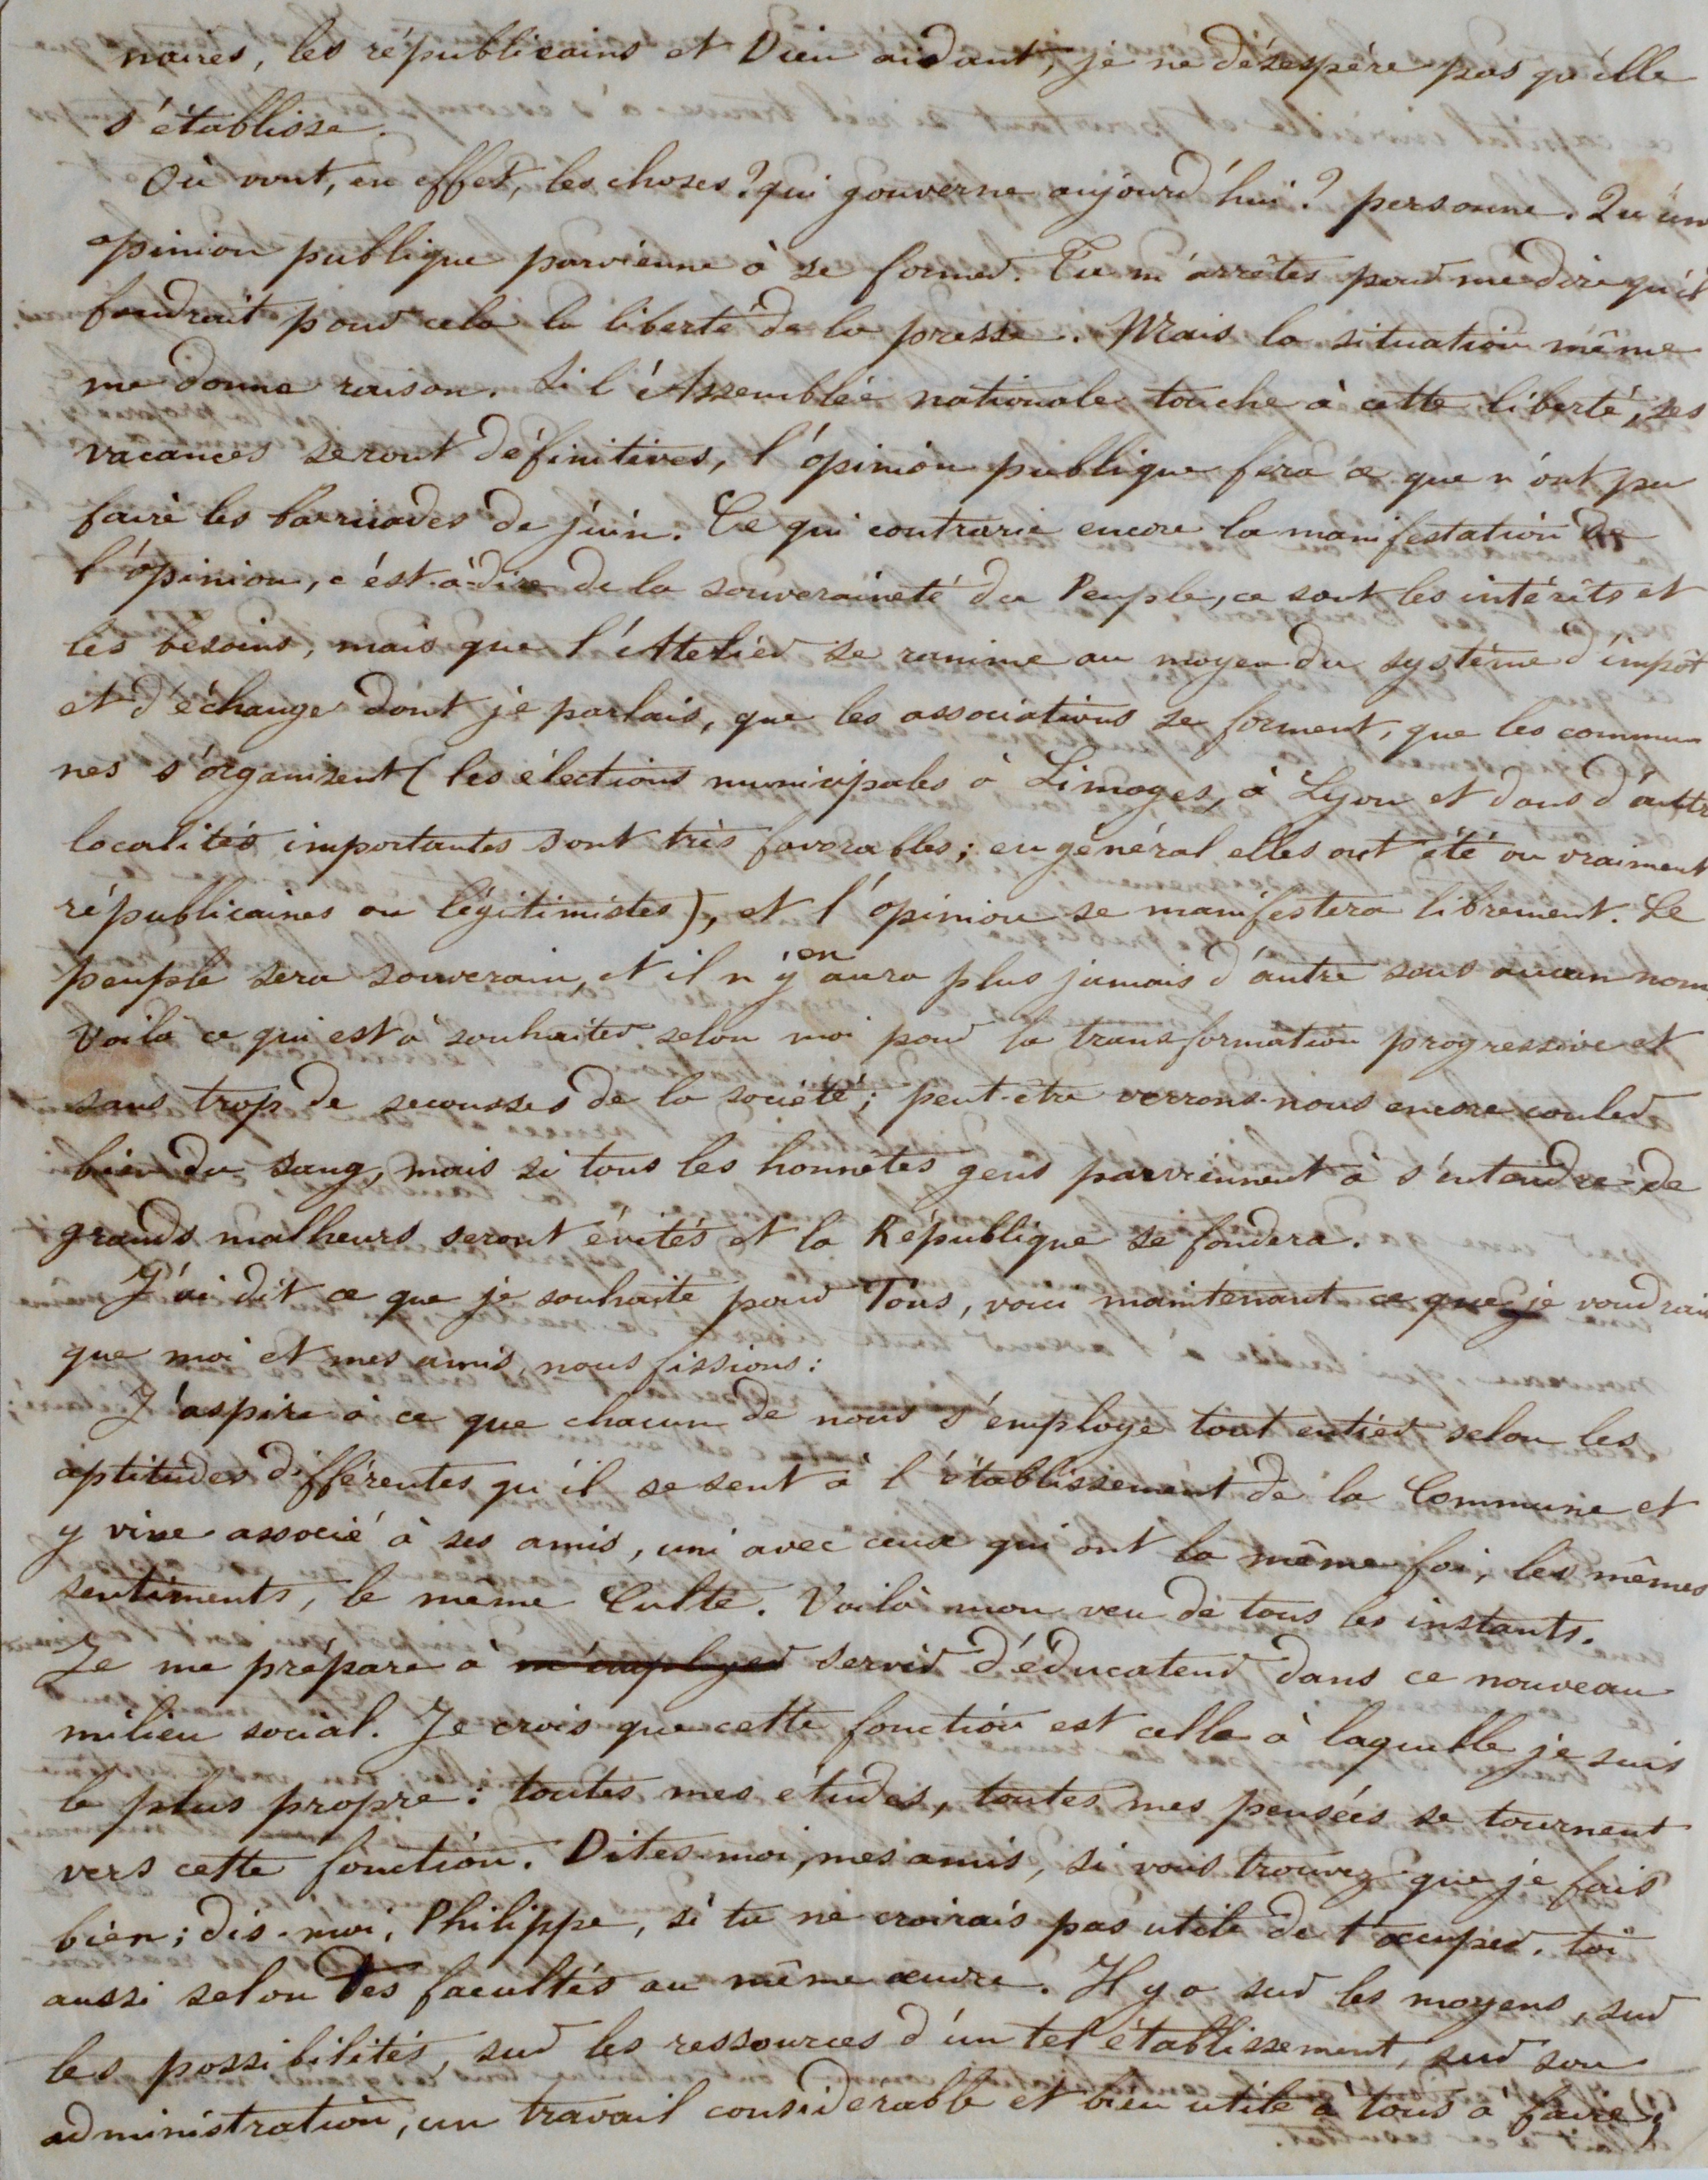 naires, les républicains et Dieu aidant, je ne désespère pas qu'elle
s'établisse.
Où vont, en effet, les choses? qui gouverne aujourd'hui? personne. Qu'un
opinion publique parvienne à se former. Tu m'arrêtes pour me dire qu'il
faudrait pour cela la liberté de la presse. Mais la situation même
me donne raison. Si l'Assemblée nationale touche à cette liberté, ses
vacances seront définitives, l'opinion publique fera ce que n'ont pu
faire les barricades de juin. Ce qui contrarie encore la manifestation de
l'opinion, c'est-à-dire de la souveraineté du Peuple, ce sont les intérêts et
les besoins, mais que l'Atelier se ranime au moyen du système d'impôt
et d'échange dont je parlais, que les associations se forment, que les commu
nes s'organisent (les élections municipales à Limoges, à Lyon et dans d'autr
localités importantes sont très favorables; en général elles ont été ou vraiment
républicaines ou légitimistes), et l'opinion se manifestera librement. Le
peuple sera souverain, et il n'y en aura plus jamais d'autre sous aucun nom
Voilà ce qui est à souhaiter selon moi pour la transformation progressive et
sans trop de secousses de la société; peut-être verrons-nous encore couler
bien du sang, mais si tous les honnêtes gens parviennent à s'entendre de
grands malheurs seront évités et la République se fondera.
J'ai dit ce que je souhaite pour Tous, voici maintenant ce que je voudrais
que moi et mes amis, nous fissions:
J'aspire à ce que chacun de nous s'employe tout entier selon les
aptitudes différentes qu'il se sent à l'établissement de la Commune et
y vive associé à ses amis, uni avec ceux qui ont la même foi, les mêmes
sentiments, le même Culte. Voilà mon veu de tous les instants.
Je me prépare à m'employer servir d'éducateur dans ce nouveau
milieu social. Je crois que cette fonction est celle à laquelle je suis
le plus propre: toutes mes études, toutes mes pensées se tournent
vers cette fonction. Dites-moi, mes amis, si vous trouvez que je fais
bien; dis-moi, Philippe, si tu ne croirais pas utile de t'occuper, toi
aussi selon tes facultés au même œuvre. Il y a sur les moyens, sur
les possibilités, sur les ressources d'un tel établissement, sur son
administration, un travail considérable et bien utile à tous à faire;